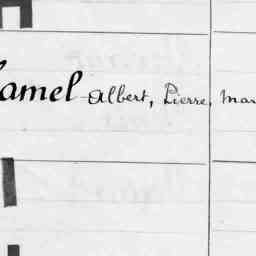 amel Albert, Pierre, Mar